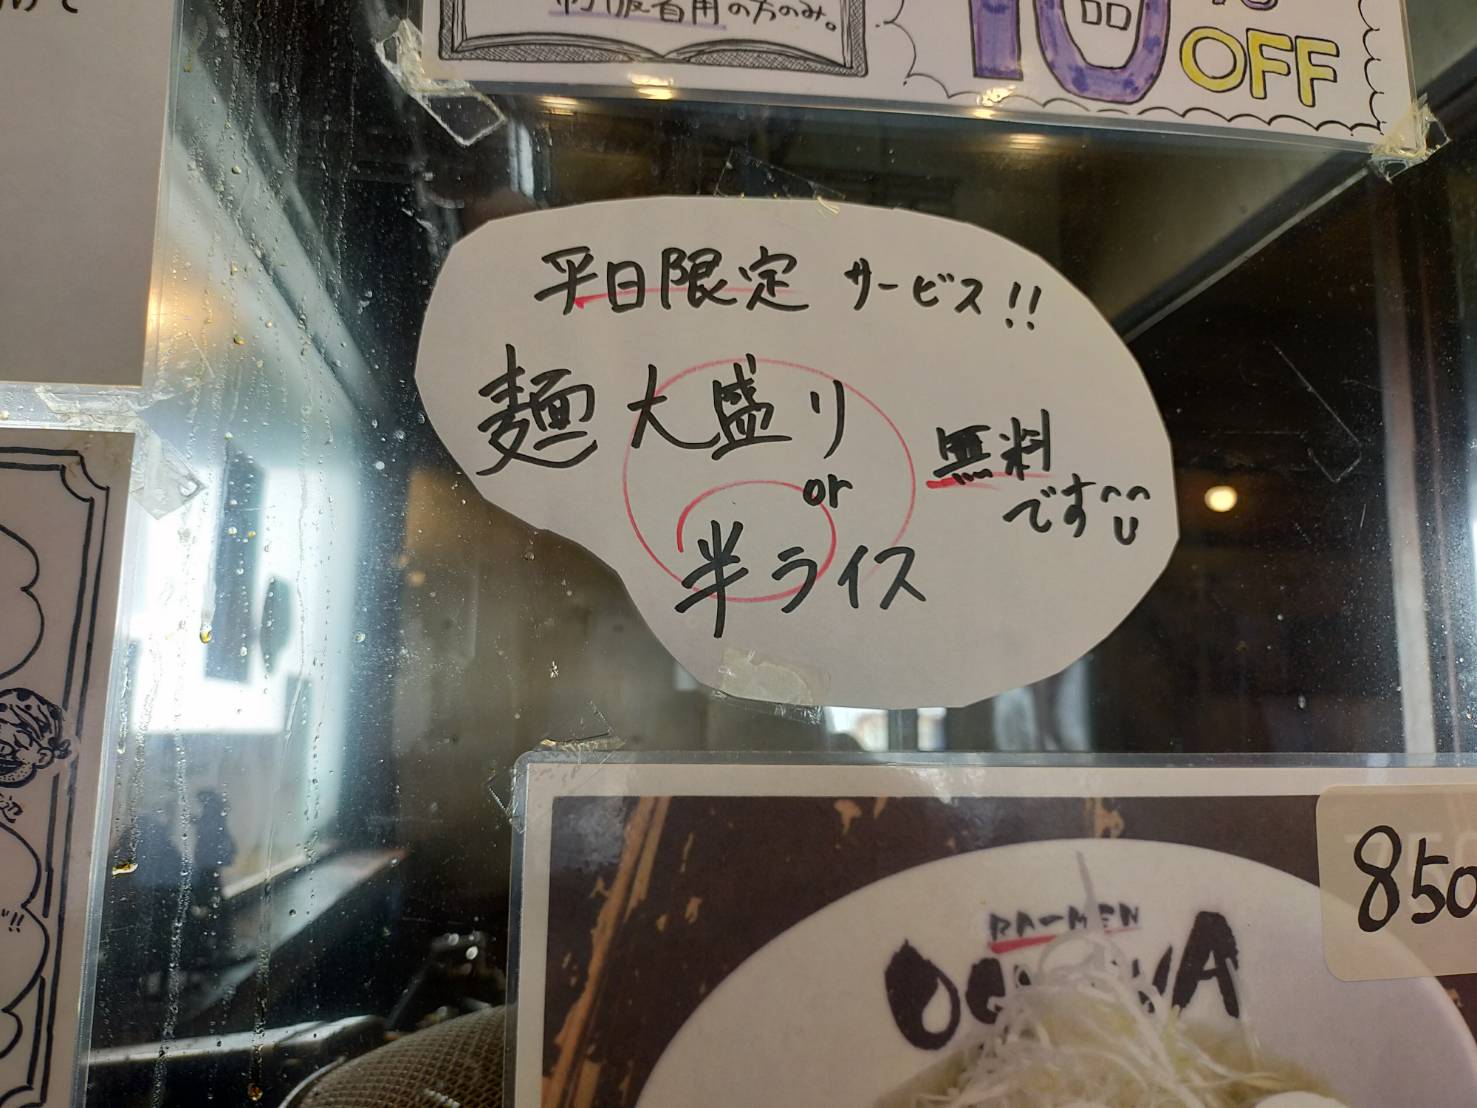 制服着用の方のみ。
10
品
OFF
平日限定 サービス!!
麺大盛り
or
半ライス
無料
です
850
RA-MEN